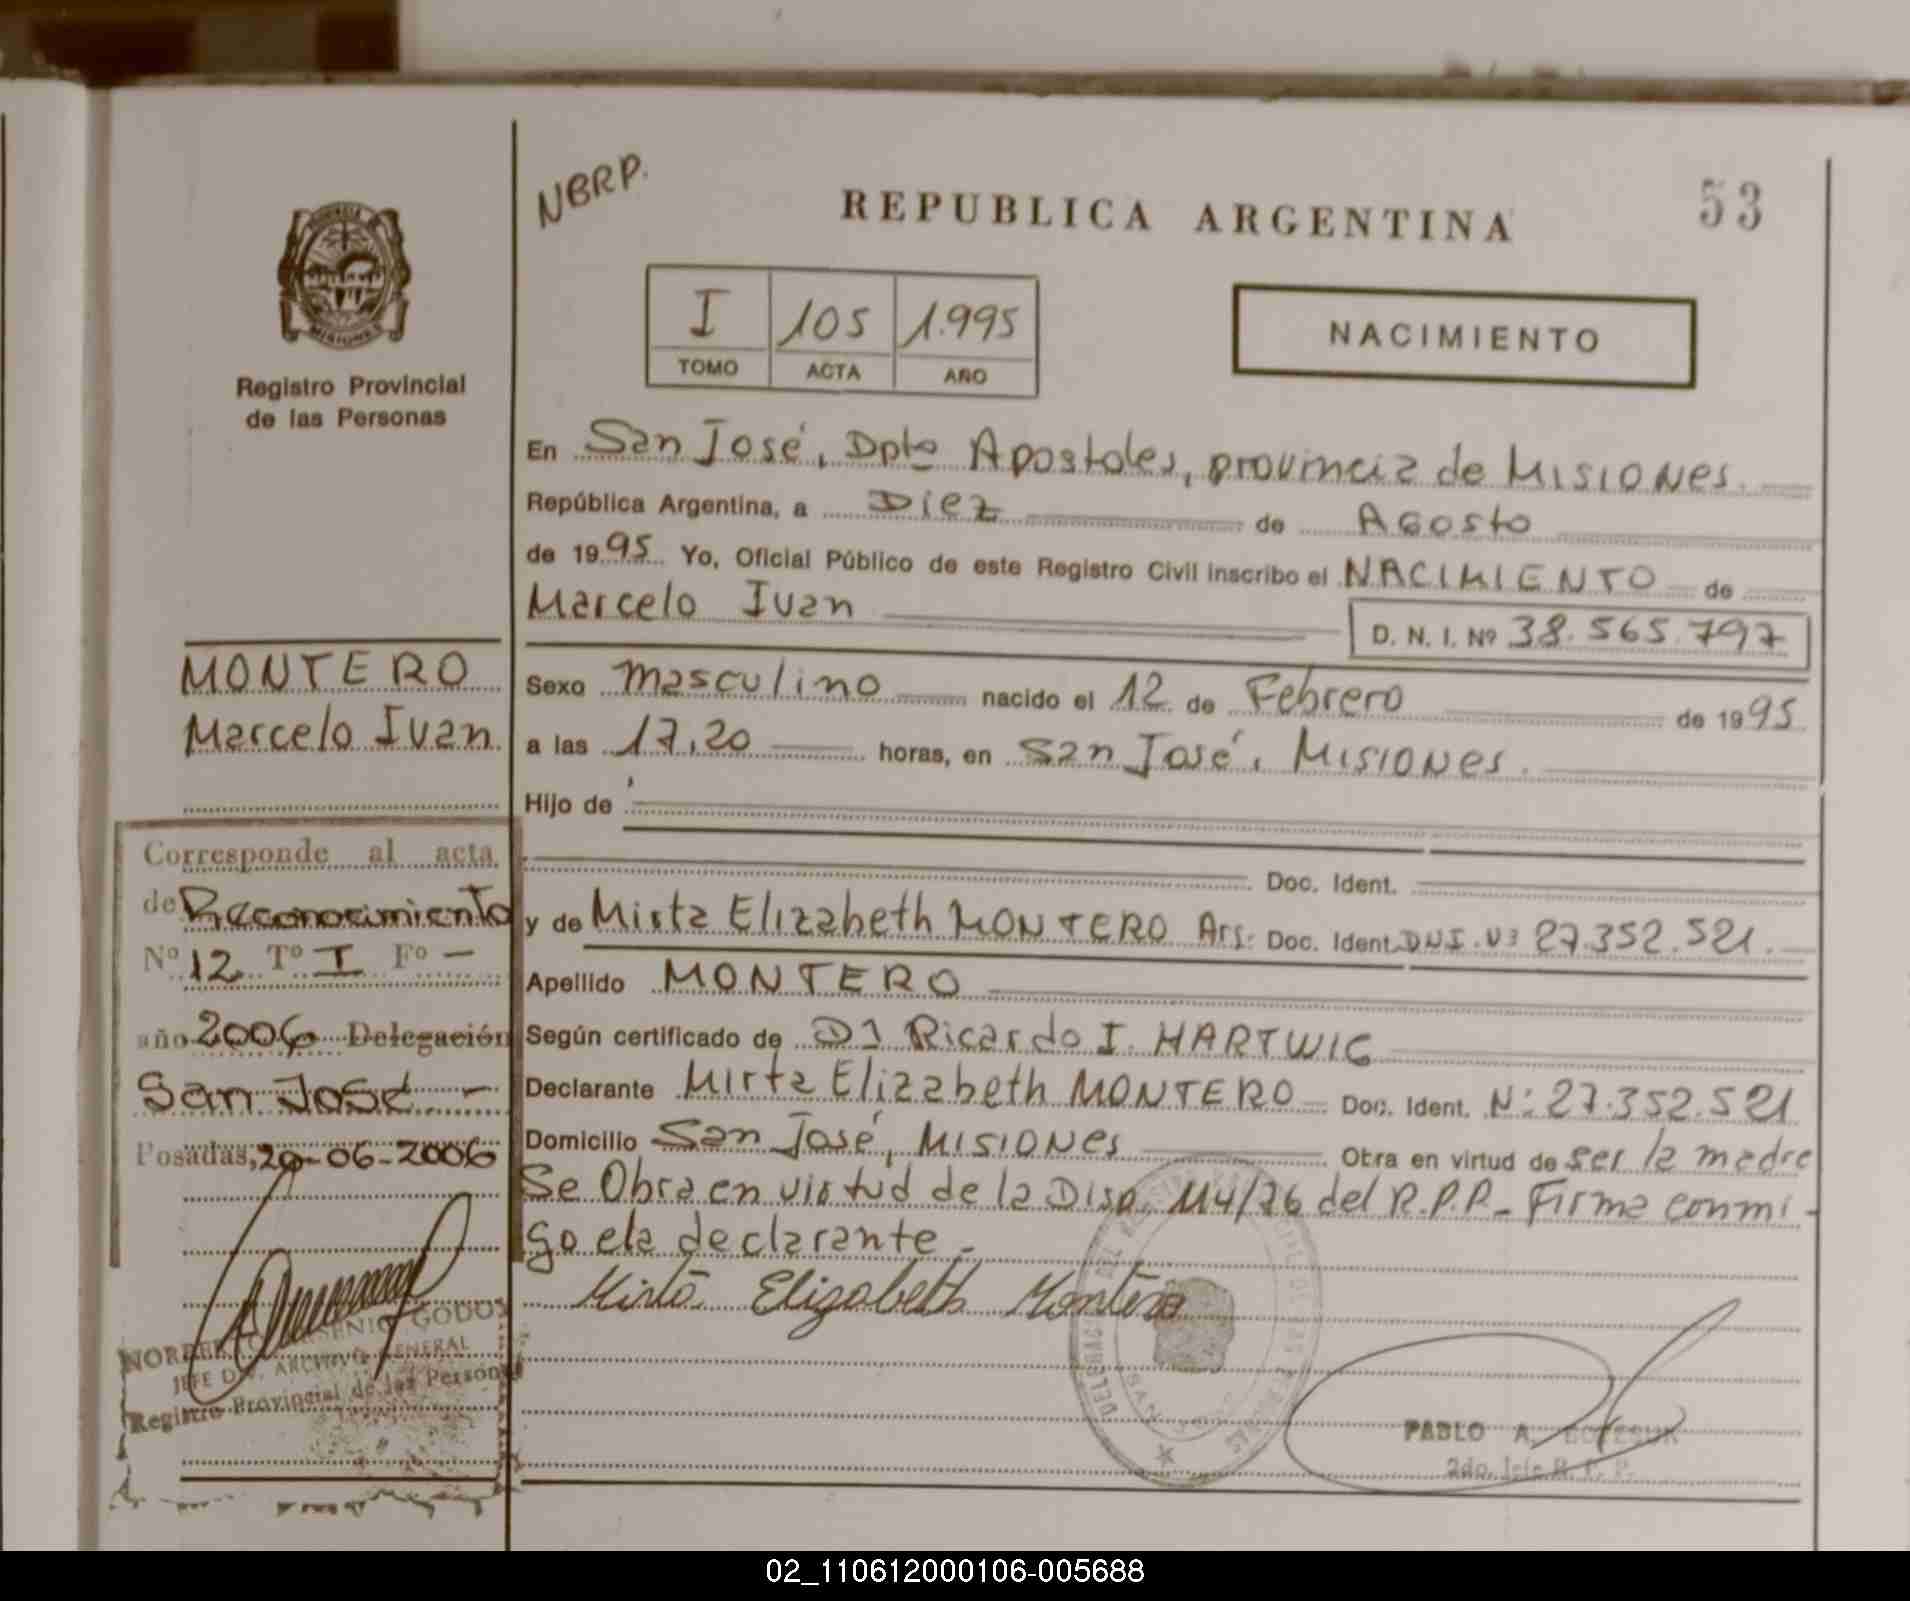 NBRP.
REPUBLICA ARGENTINA
53
I 105 1.995
TOMO ACTA AÑO
NACIMIENTO
MISIONES
Registro Provincial
de las Personas
En San José, Dpto Apostoles, provincia de Misiones.
República Argentina, a Diez de Agosto
de 1995 Yo, Oficial Público de este Registro Civil inscribo el NACIMIENTO de
Marcelo Ivan
D. N. I. Nº 38.565.797
Sexo masculino nacido el 12 de Febrero de 1995
a las 17,20 horas, en San José, Misiones.
Hijo de
Doc. Ident.
y de Mirta Elizabeth MONTERO Arg. Doc. Ident. DNI. Nº 27.352.521.
Apellido MONTERO
Según certificado de Dr Ricardo I. HARTWIG
Declarante Mirta Elizabeth MONTERO Doc. Ident. Nº 27.352.521
Domicilio San José, Misiones Obra en virtud de ser la madre
Se Obra en virtud de la Disp. 114/76 del R.P.P. - Firma conmi-
go ela declarante -
Mirta Elizabeth Montero
PABLO A.
2do. Jefe R. P. P.
MONTERO
Marcelo Ivan
Corresponde al acta
de Reconocimiento
Nº 12 Tº I Fº -
año 2006 Delegación
San José -
Posadas, 20-06-2006
GODOY
JEFE DIV. ARCHIVO GENERAL
Registro Provincial de las Personas
02_110612000106-005688